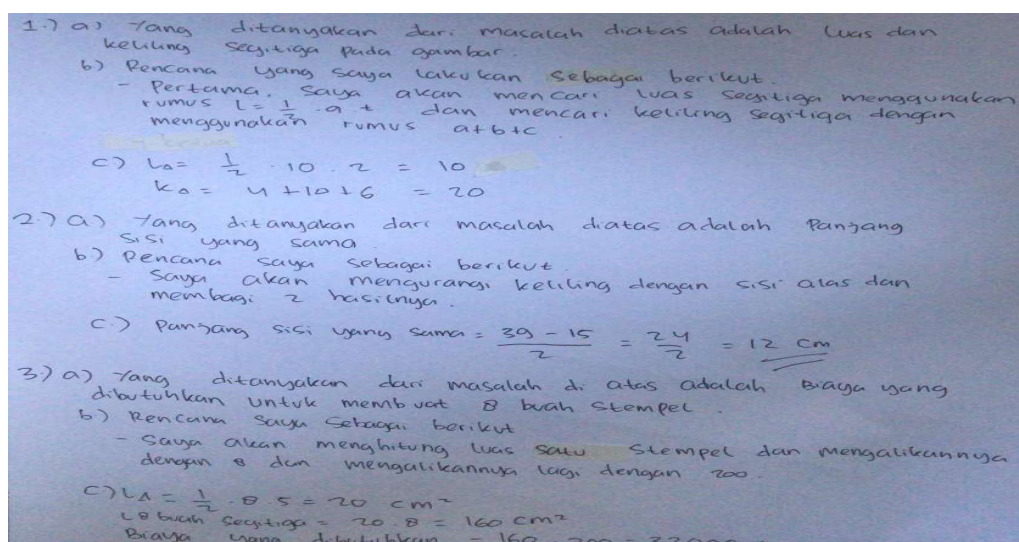 1.) a) Yang ditanyakan dari masalah diatas adalah luas dan
keliling segitiga pada gambar.
b) Rencana yang saya lakukan sebagai berikut.
- Pertama, saya akan mencari luas segitiga menggunakan
rumus L = 1/2 . a . t dan mencari keliling segitiga dengan
menggunakan rumus a+b+c
c) L△ = 1/2 . 10 . 2 = 10
K△ = 4 + 10 + 6 = 20
2.) a) Yang ditanyakan dari masalah diatas adalah Panjang
sisi yang sama
b.) Rencana saya sebagai berikut.
- Saya akan mengurangi keliling dengan sisi alas dan
membagi 2 hasilnya.
c.) Panjang sisi yang sama = 39 - 15 / 2 = 24 / 2 = 12 cm
3.) a) Yang ditanyakan dari masalah di atas adalah Biaya yang
dibutuhkan untuk membuat 8 buah stempel.
b.) Rencana saya sebagai berikut
- Saya akan menghitung luas satu stempel dan mengalikannya
dengan 8 dan mengalikannya lagi dengan 200.
c) L△ = 1/2 . 8 . 5 = 20 cm²
L 8 buah segitiga = 20 . 8 = 160 cm²
Biaya yang dibutuhkan = 160 . 200